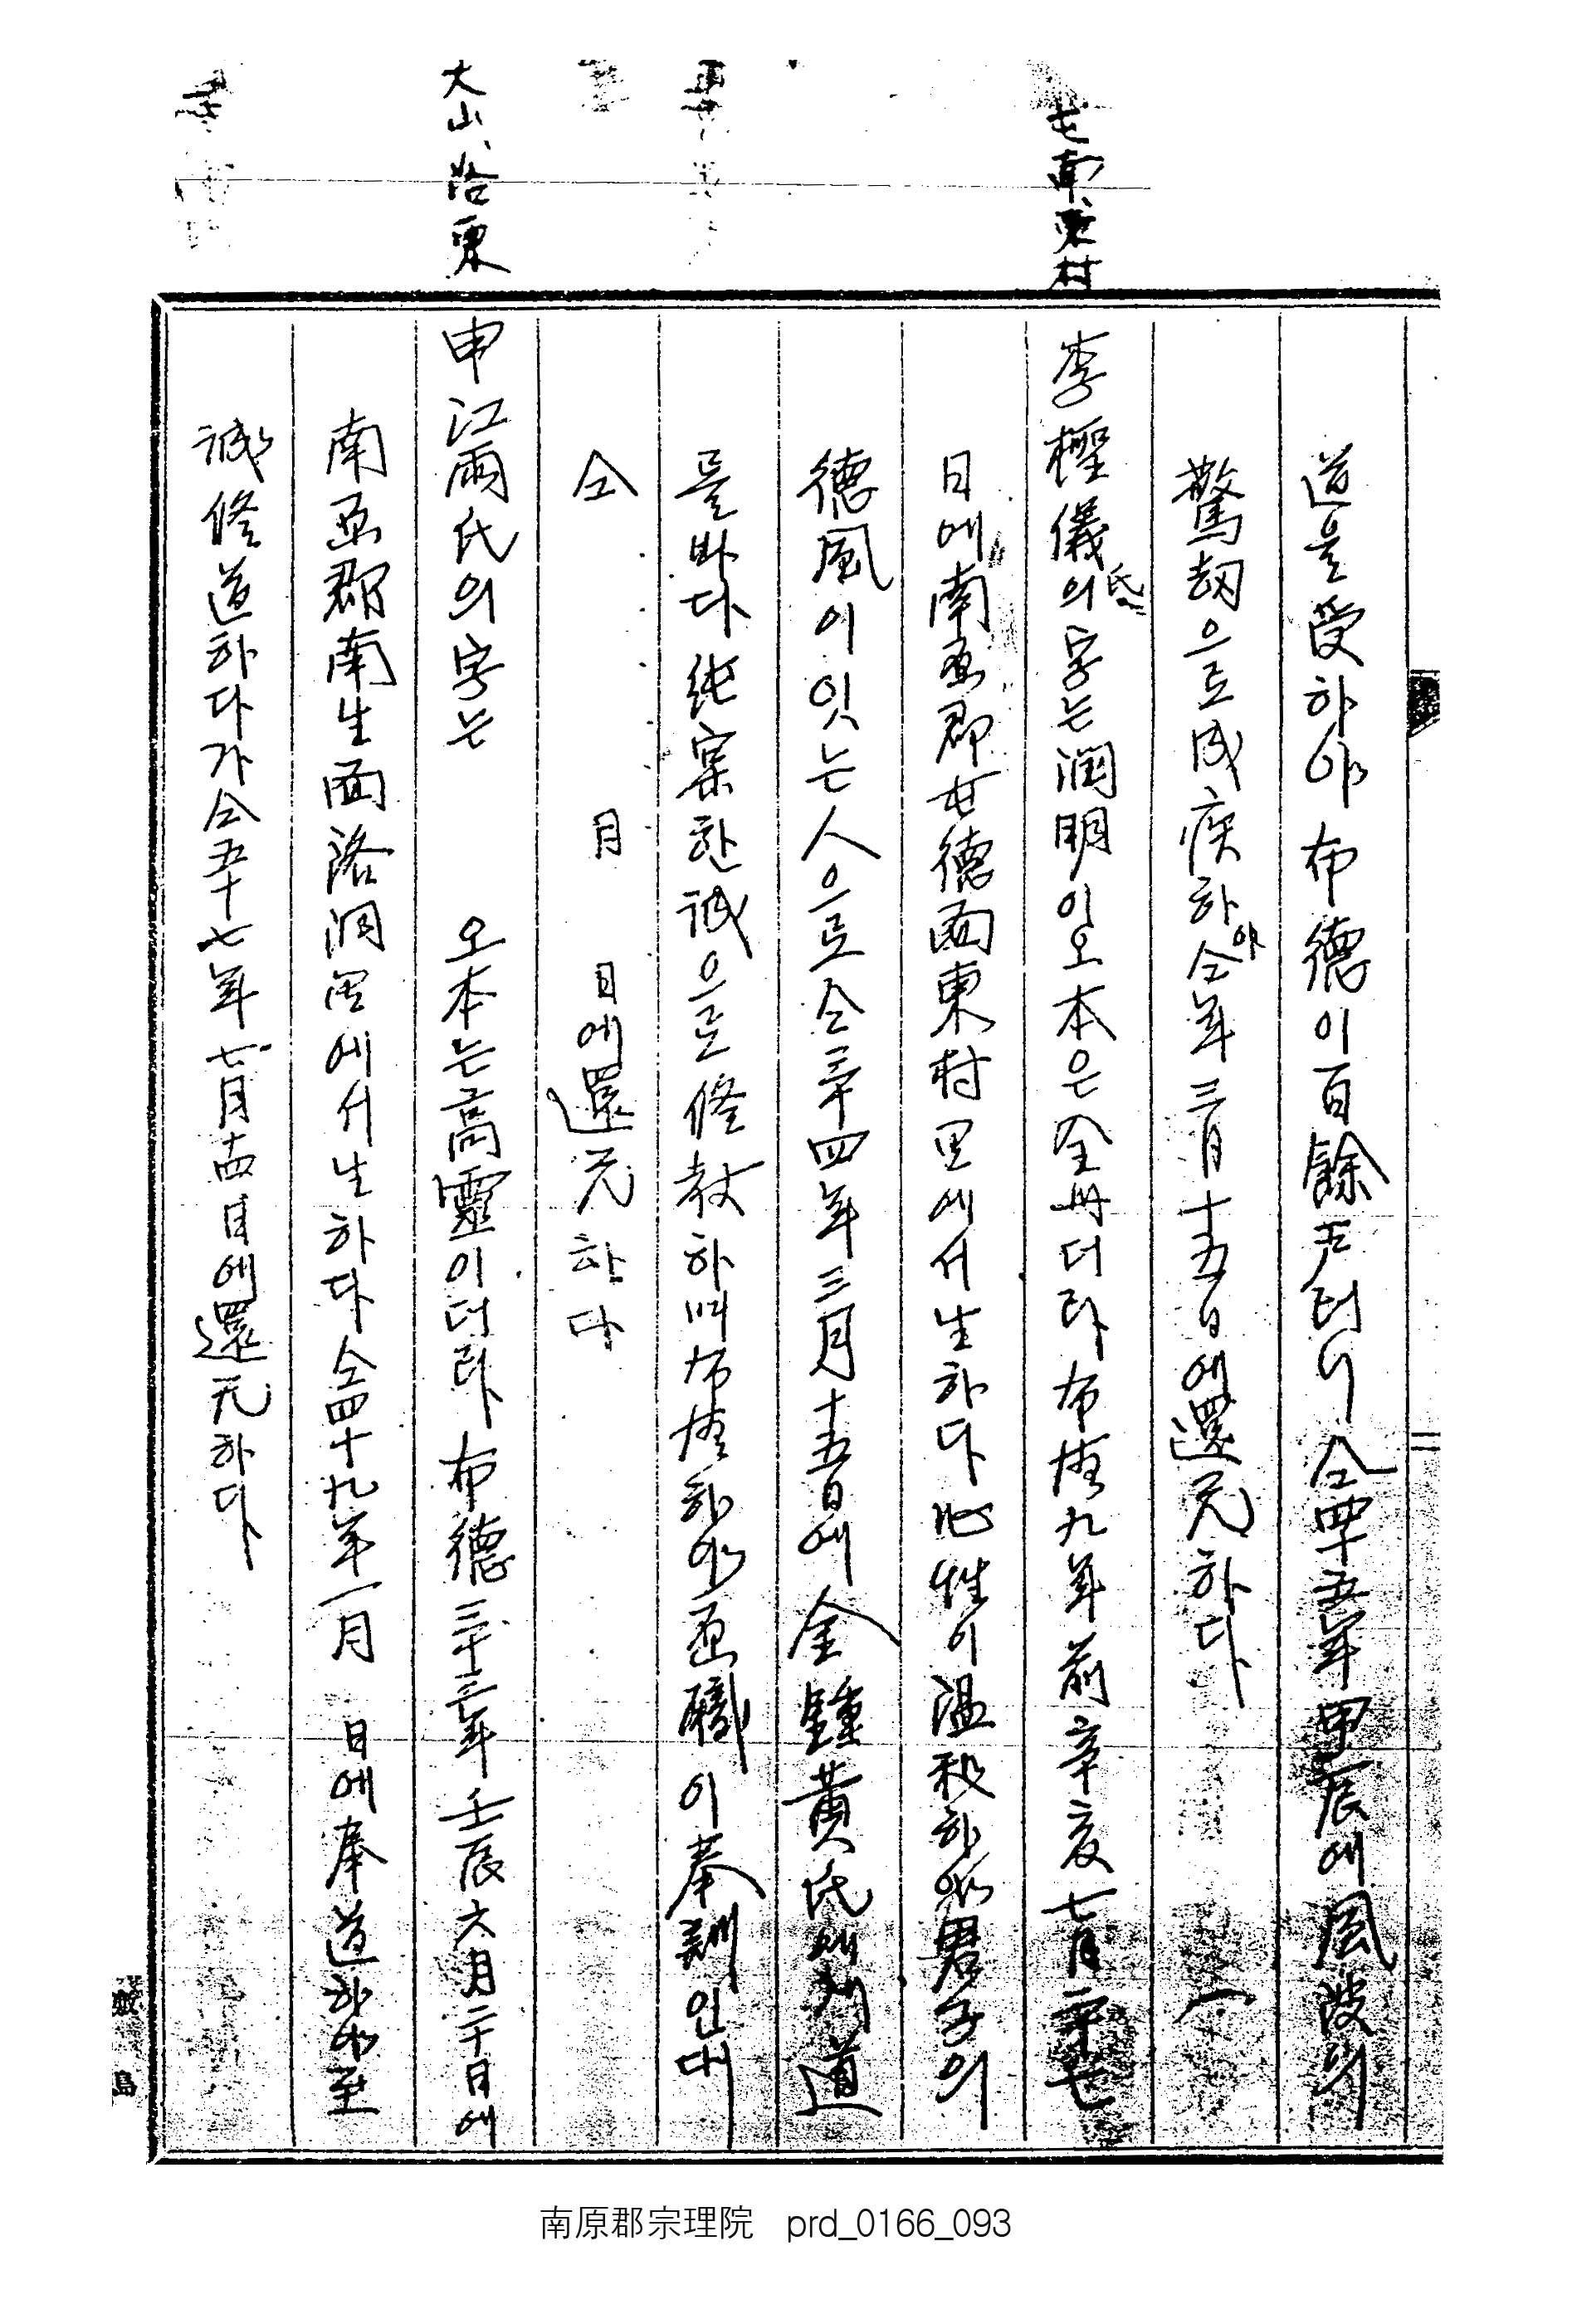 道을受하야布德이百餘戶러니仝四十五年甲辰에風波의
驚刼으로成疾하야仝年三月十五日에還元하다
屯南東村
李樫儀氏의字는潤明이오本은全州더라布德九年前辛亥七月二十七
日에南原郡屯德面東村里에서生하다心性이溫和하야君子의
德風이잇는人으로仝三十四年三月十五日에金鍾黃氏에게道
를바다純實한誠으로修敎하며布德하야原職이奉訓인대
仝 月 日에還元하다
大山洛東
申江雨氏의字는 오本은高靈이더라布德三十三年壬辰六月二十日에
南原郡南生面洛洞里에서生하다仝四十九年一月 日에奉道하야至
誠修道하다가仝五十七年七月十四日에還元하다
南原郡宗理院 prd_0166_093